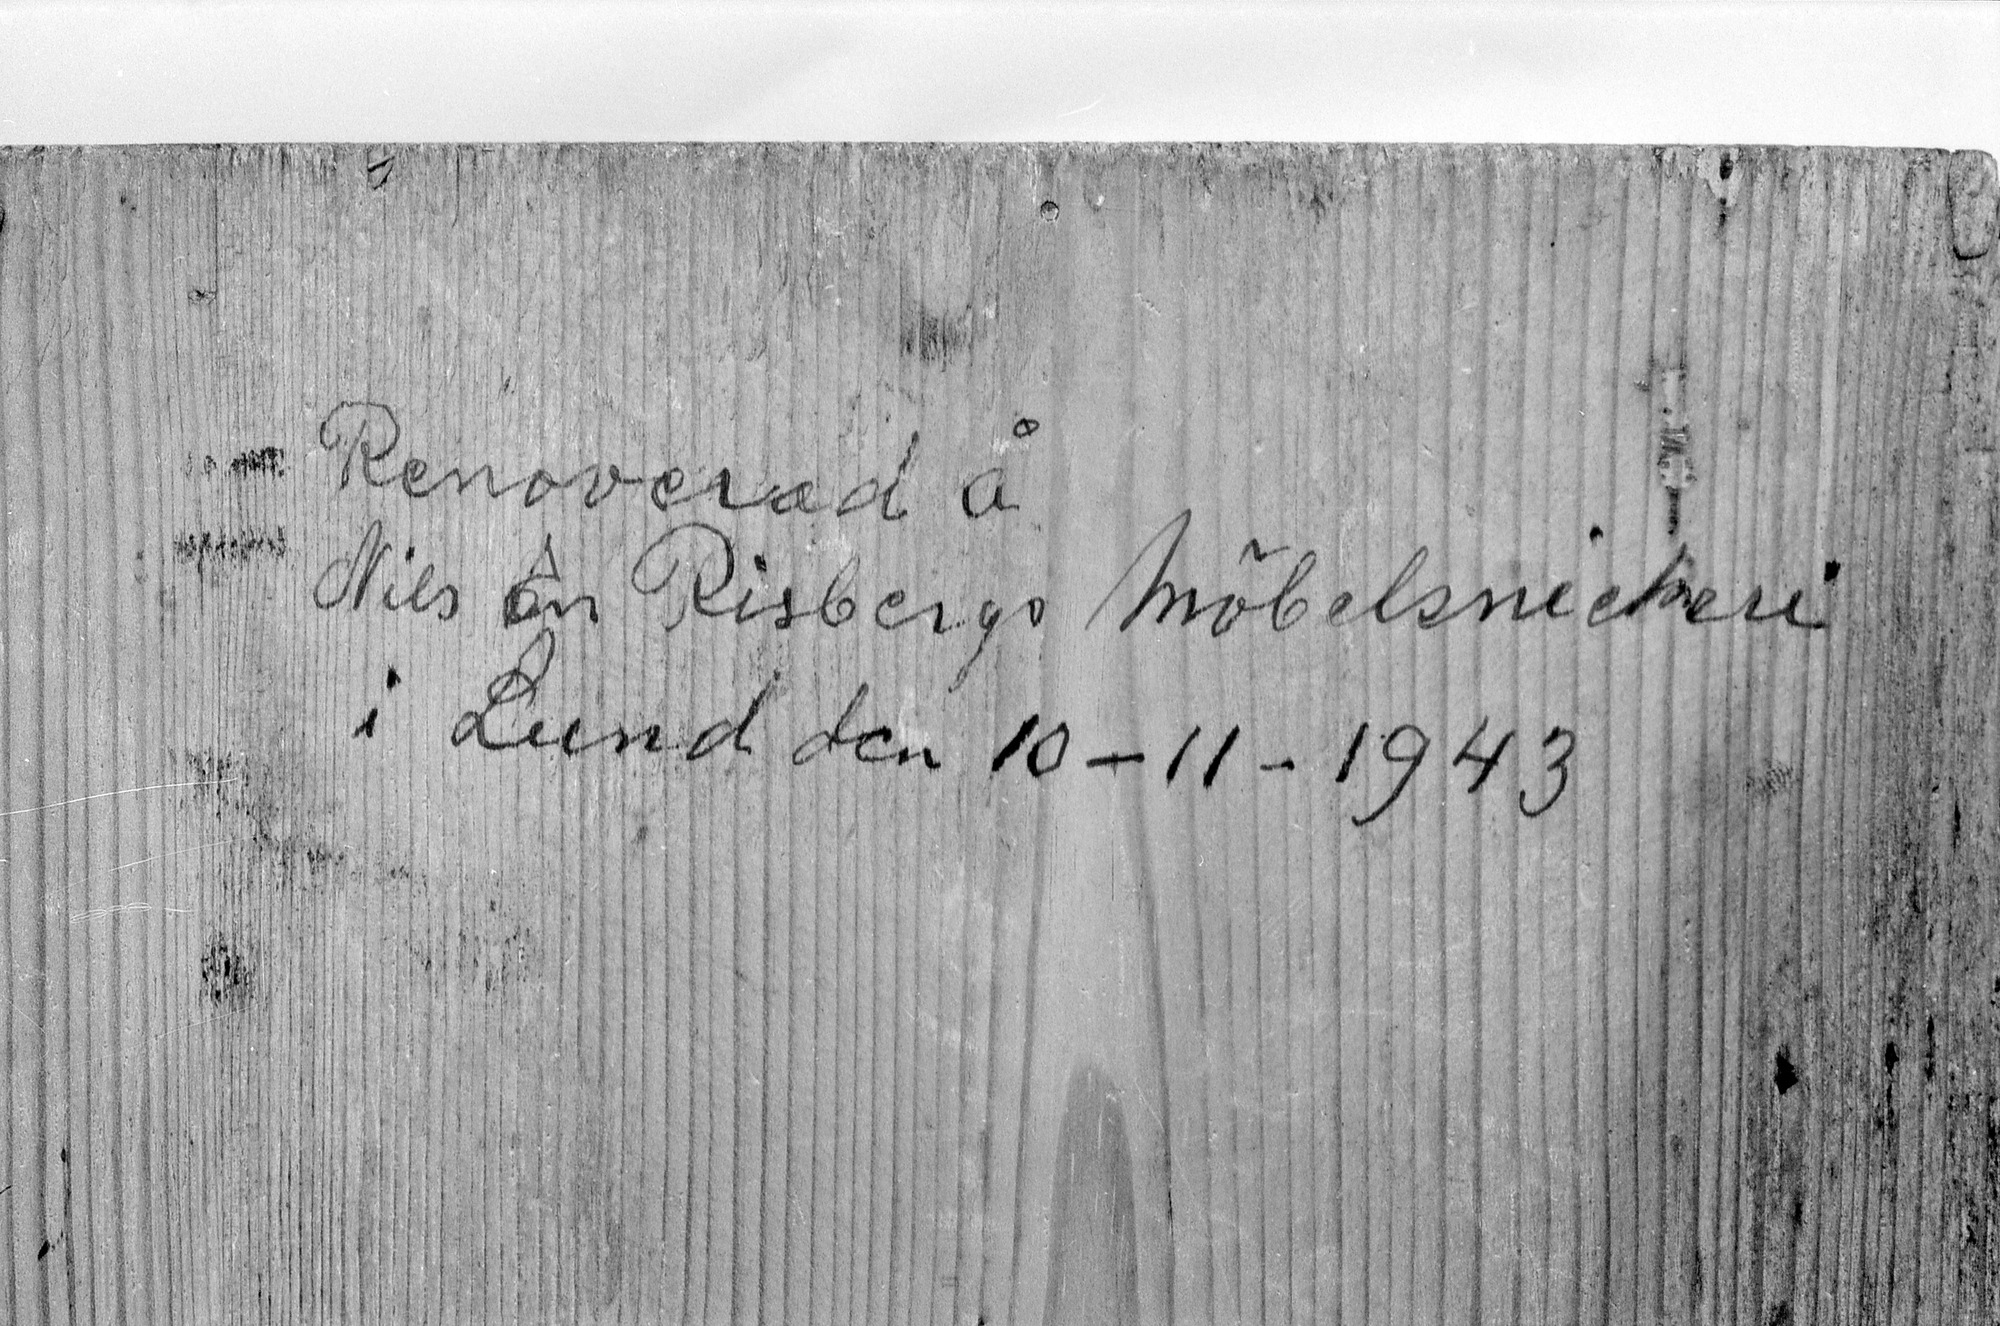 Renoverad å
Nils Ön Risbergs Möbelsnickeri
i Lund den 10-11-1943